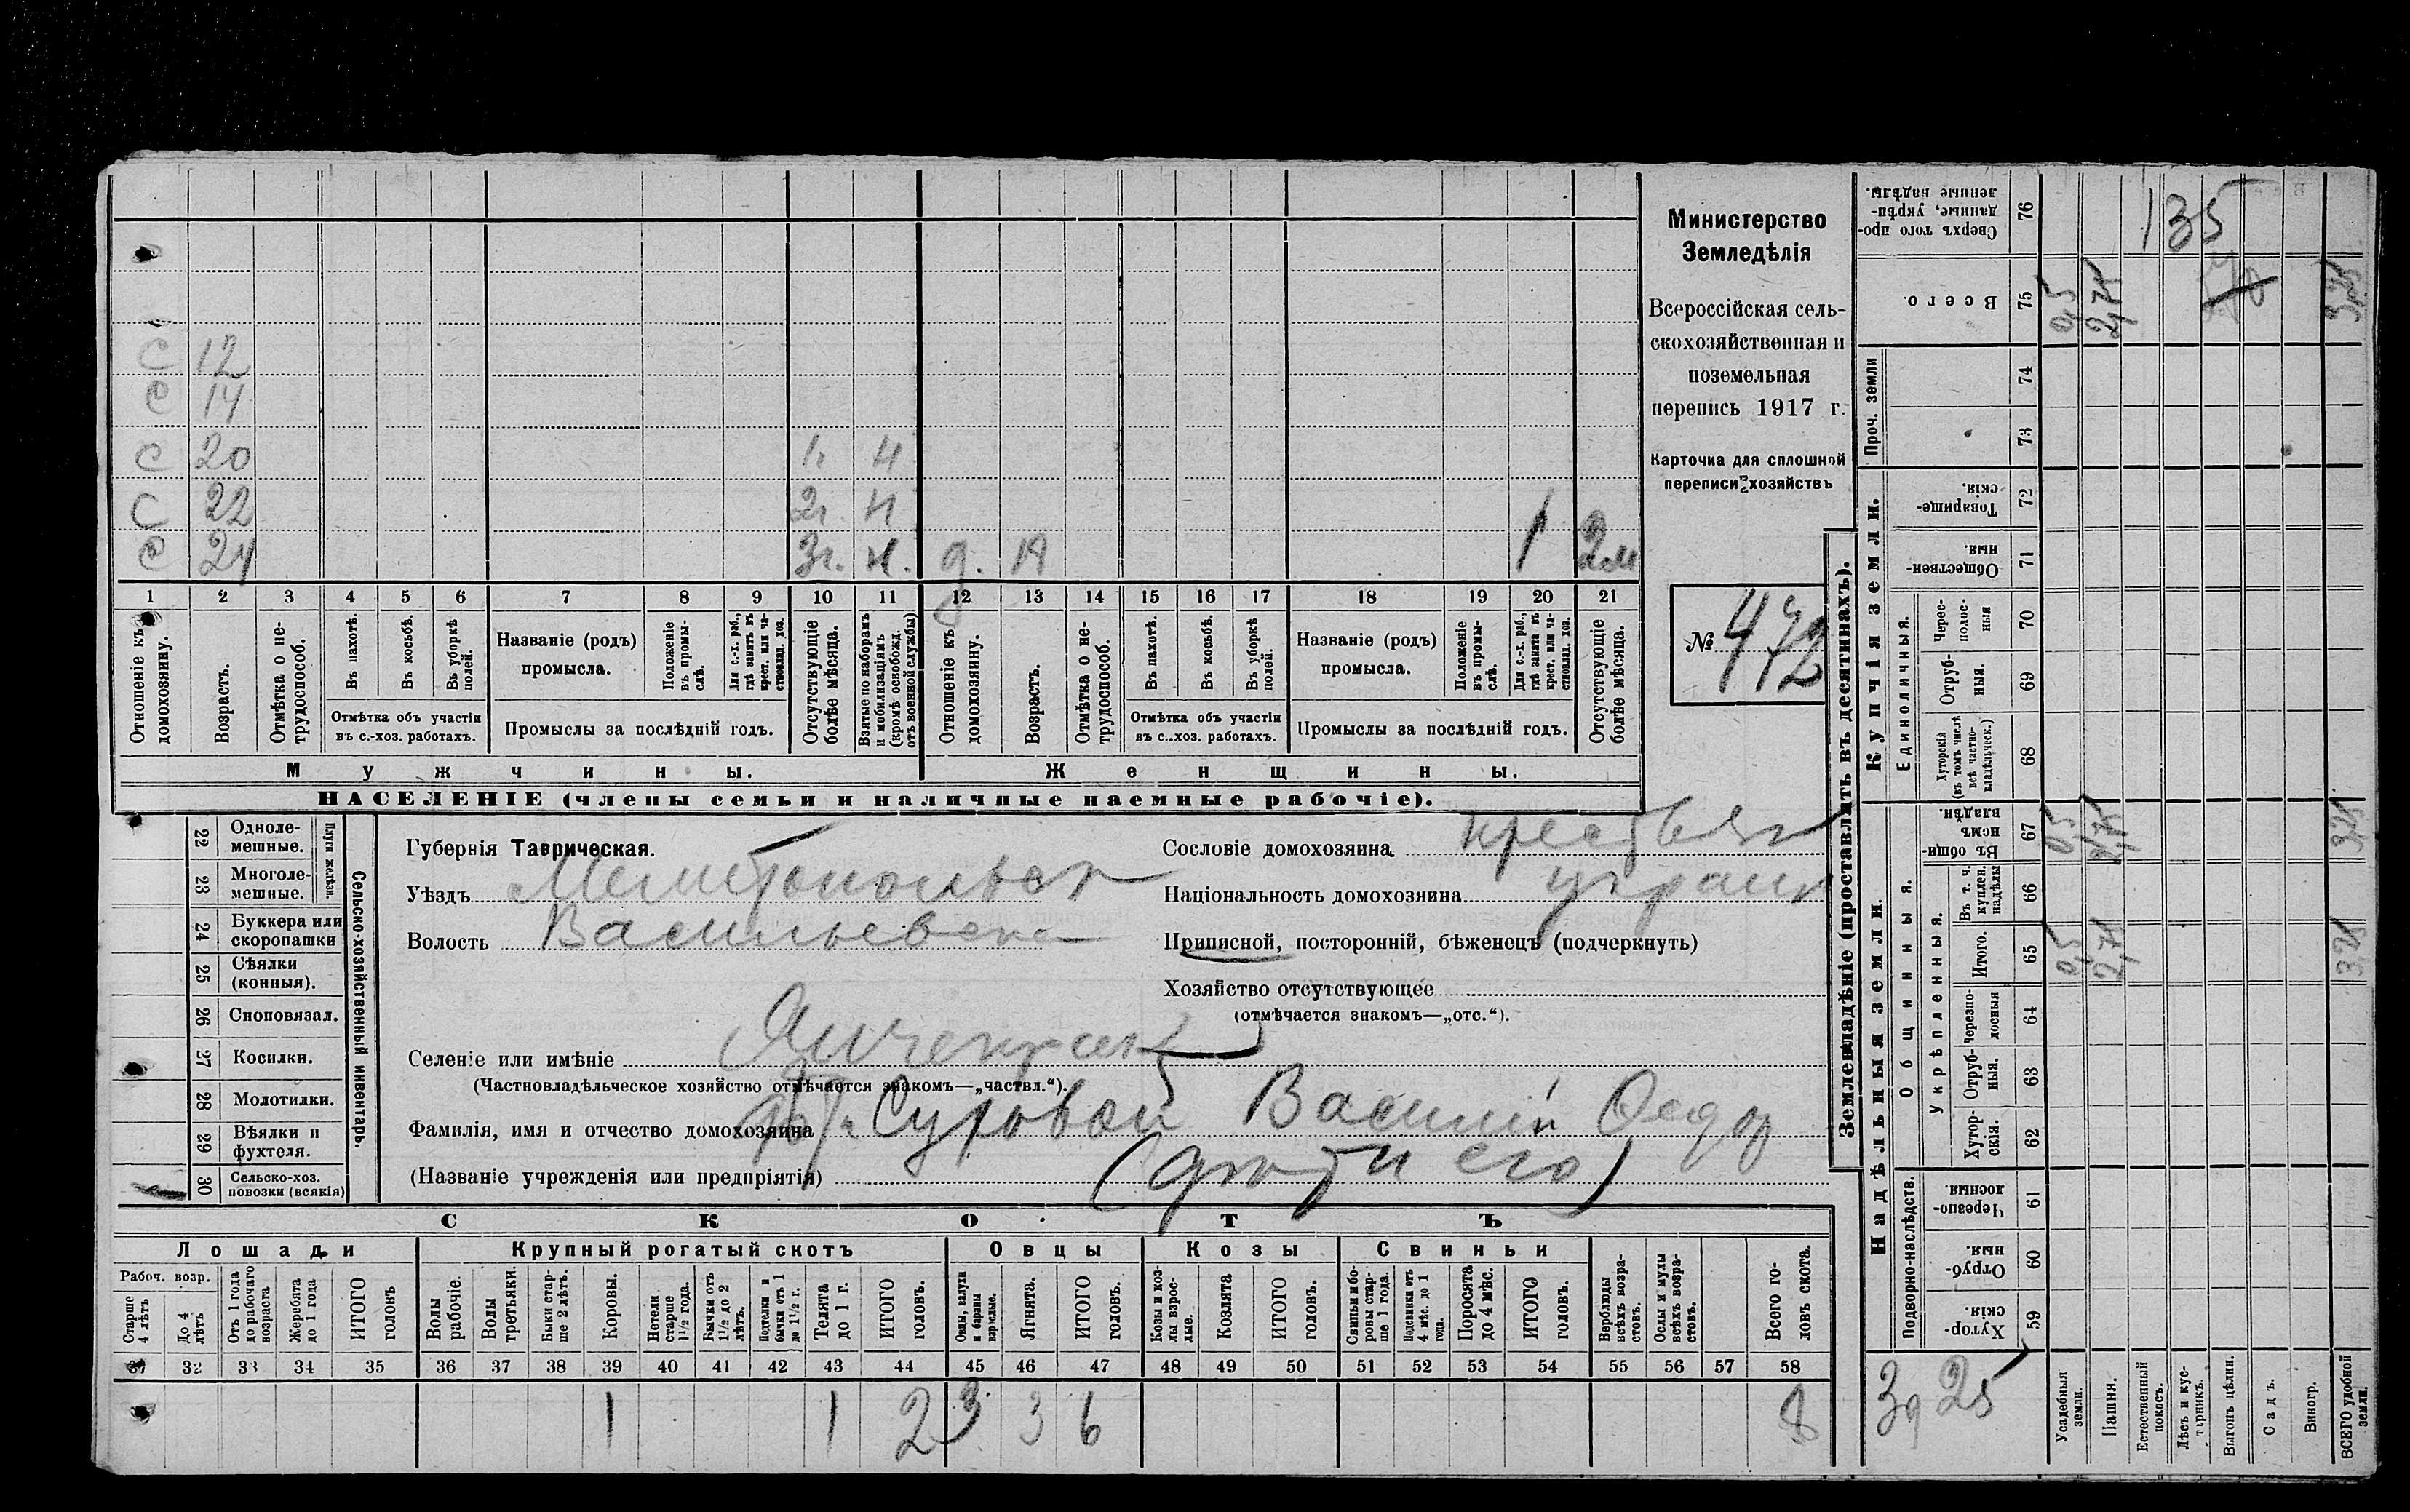 С 12
С 14
С 20 1г. н
С 22 2г. н
С 24 3г. н. д. 19 1 2м
1 2 3 4 5 6 7 8 9 10 11 12 13 14 15 16 17 18 19 20 21
Отношеніе къ домохозяину.
Возрастъ.
Отмѣтка о нетрудоспособ.
Въ пахотѣ.
Въ косьбѣ.
Въ уборкѣ полей.
Отмѣтка объ участіи
въ с.-хоз. работахъ.
Названіе (родъ)
промысла.
Положеніе въ промыслѣ.
Для с.-х. раб., гдѣ занятъ въ крест. или частновлад. хоз.
Промыслы за послѣдній годъ.
Отсутствующіе болѣе мѣсяца.
Взятые по наборамъ и мобилизаціямъ (кромѣ освобожд. отъ военной службы)
Отношеніе къ домохозяину.
Возрастъ.
Отмѣтка о нетрудоспособ.
Въ пахотѣ.
Въ косьбѣ.
Въ уборкѣ полей.
Отмѣтка объ участіи
въ с.-хоз. работахъ.
Названіе (родъ)
промысла.
Положеніе въ промыслѣ.
Для с.-х. раб., гдѣ занятъ въ крест. или частновлад. хоз.
Промыслы за послѣдній годъ.
Отсутствующіе болѣе мѣсяца.
Мужчины. Женщины.
НАСЕЛЕНІЕ (члены семьи и наличные наемные рабочіе).
Министерство
Земледѣлія
Всероссійская сель-
скохозяйственная и
поземельная
перепись 1917 г.
Карточка для сплошной
переписи хозяйствъ
№ 472
22 Одноле-
мешные.
23 Многоле-
мешные.
Плуги желѣзн.
24 Буккера или
скоропашки
25 Сѣялки
(конныя).
26 Сноповязал.
27 Косилки.
28 Молотилки.
29 Вѣялки и
фухтеля.
30 Сельско-хоз.
повозки (всякія)
Сельско-хозяйственный инвентарь.
Губернія Таврическая.
Уѣздъ Мелитопольск
Волость Васильевска
Селеніе или имѣніе Янчекрак
(Частновладѣльческое хозяйство отмѣчается знакомъ—„частвл.“).
Фамилія, имя и отчество домохозяина Суровой Василій Федор
(Названіе учрежденія или предпріятія) (дѣти его)
Сословіе домохозяина крестьян
Національность домохозяина украин
Приписной, посторонній, бѣженецъ (подчеркнуть)
Хозяйство отсутствующее
(отмѣчается знакомъ—„отс.“).
СКОТЪ
Лошади Крупный рогатый скотъ Овцы Козы Свиньи
Рабоч. возр.
Старше 4 лѣтъ
До 4 лѣтъ
Отъ 1 года до рабочаго возраста
Жеребята до 1 года
ИТОГО головъ
Волы рабочіе.
Волы третьяки.
Быки старше 2 лѣтъ.
Коровы.
Нетели старше 1½ года.
Бычки отъ 1½ до 2 лѣтъ.
Подтелки и бычки отъ 1 до 1½ г.
Телята до 1 г.
ИТОГО головъ.
Овцы, валухи и бараны взрослые.
Ягнята.
ИТОГО головъ.
Козы и козлы взрослые.
Козлята
ИТОГО головъ.
Свиньи и боровы старше 1 года.
Подсвинки отъ 4 мѣс. до 1 года.
Поросята до 4 мѣс.
ИТОГО головъ.
Верблюды всѣхъ возрастовъ.
Ослы и мулы всѣхъ возрастовъ.
Всего головъ скота.
31 32 33 34 35 36 37 38 39 40 41 42 43 44 45 46 47 48 49 50 51 52 53 54 55 56 57 58
1 1 2 3 3 6 8
Землевладѣніе (проставлять въ десятинахъ).
Надѣльныя земли. Купчія земли. Проч. земли
Подворно-наслѣдств.
Общинныя.
Укрѣпленныя.
Единоличныя.
Хуторскія. 59
Отрубныя. 60
Черезполосныя. 61
Хуторскія. 62
Отрубныя. 63
Черезполосныя 64
Итого. 65
Въ т. ч. куплен. надѣлы 66
Въ общинномъ владѣн. 67
Хуторскія (въ томъ числѣ всѣ частновладѣльческ.) 68
Отрубныя. 69
Черезполосныя 70
Общественныя. 71
Товарищескія. 72
73
74
Всего. 75
Сверхъ того проданные, укрѣпленные надѣлы. 76
Усадебныя земли.
Пашня.
Естественный покосъ.
Лѣсъ и кустарникъ.
Выгонъ цѣлин.
Садъ.
Виногр.
ВСЕГО удобной земли.
0,5 2,75 3,25
0,5 2,75 3,25
0,5 2,75 3,25
135
3д 25